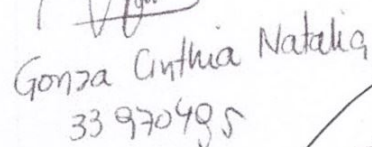 Gonza Cinthia Natalia
33970495